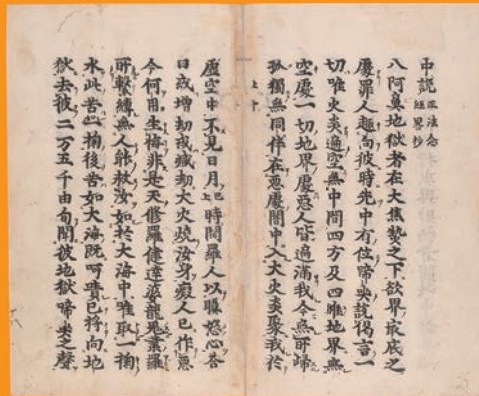 中説正法念経畧抄
八阿鼻地獄者在大焦熱之下欲界㝡底之
處罪人趣向彼時先中有位啼哭説偈言一
切唯火炎遍空無中間四方及四維地界無
空處一切地界處惡人皆遍滿我今無所歸
孤獨無同伴在惡處闇中入大火炎聚我於
上十
虚空中不見日月已上時閻羅人以瞋怒心荅
曰或増劫或減劫大火燒汝身癡人已作惡
今何用生悔非是天修羅健達婆龍鬼業羅
所繋縛無人能救汝如於大海中唯取一掬
水此苦一掬後苦如大海既呵嘖已將向地
獄去彼二万五千由旬聞彼地獄啼哭之聲